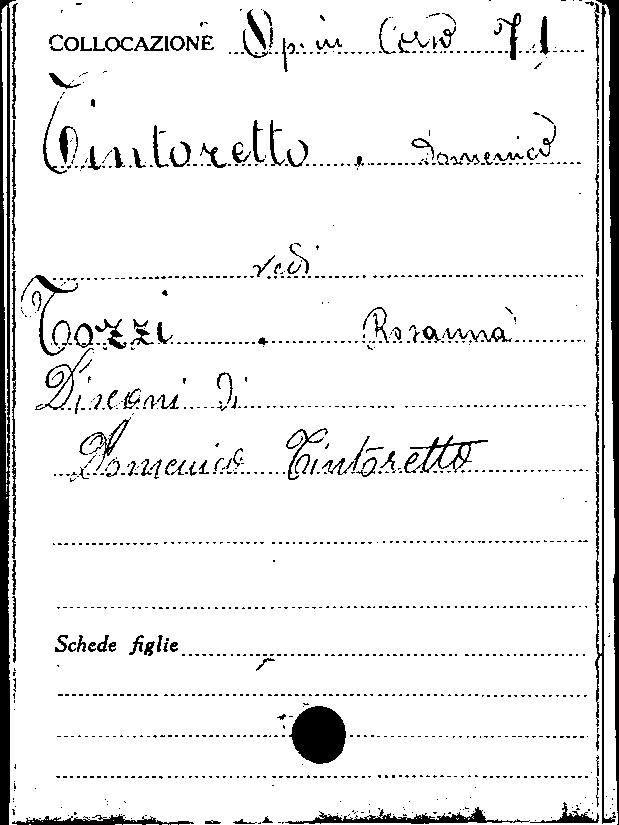 COLLOCAZIONE Op. in Corso 71
Tintoretto. Domenico
vedi
Tozzi. Rosanna
Disegni di
Domenico Tintoretto
Schede figlie